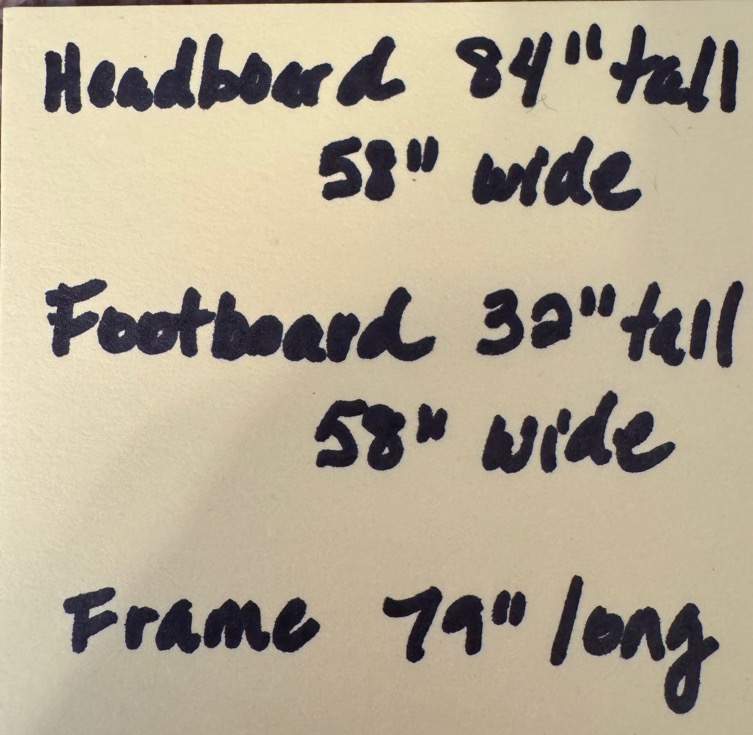 Headboard 84" tall
58" wide
Footboard 32" tall
58" wide
Frame 79" long